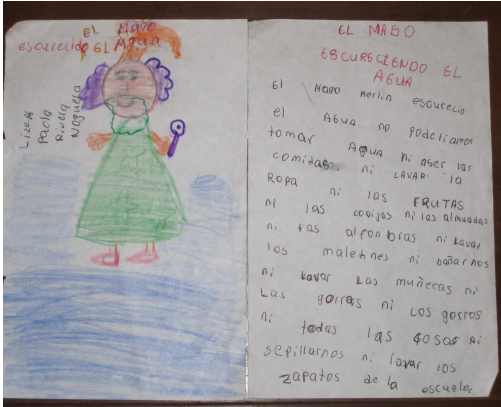 EL MAGO
escurecido EL AGUA
Lizeth
Paola
Rivera
Noguera
EL MAGO
ESCURECIENDO EL
AGUA
El MAGO Merlin escurecio
el AGUA no podeliamos
tomar AGUA ni aser las
comidas ni LAVAR la
ROPA ni las FRUTAS
ni las cobijas ni las almuadas
ni las alfonbras ni Lavar
los maletines ni bañarnos
ni Lavar las muñecas ni
Las gorras ni LOS gorros
ni todas las cosas ni
sepillarnos ni lavar los
zapatos de la escuela